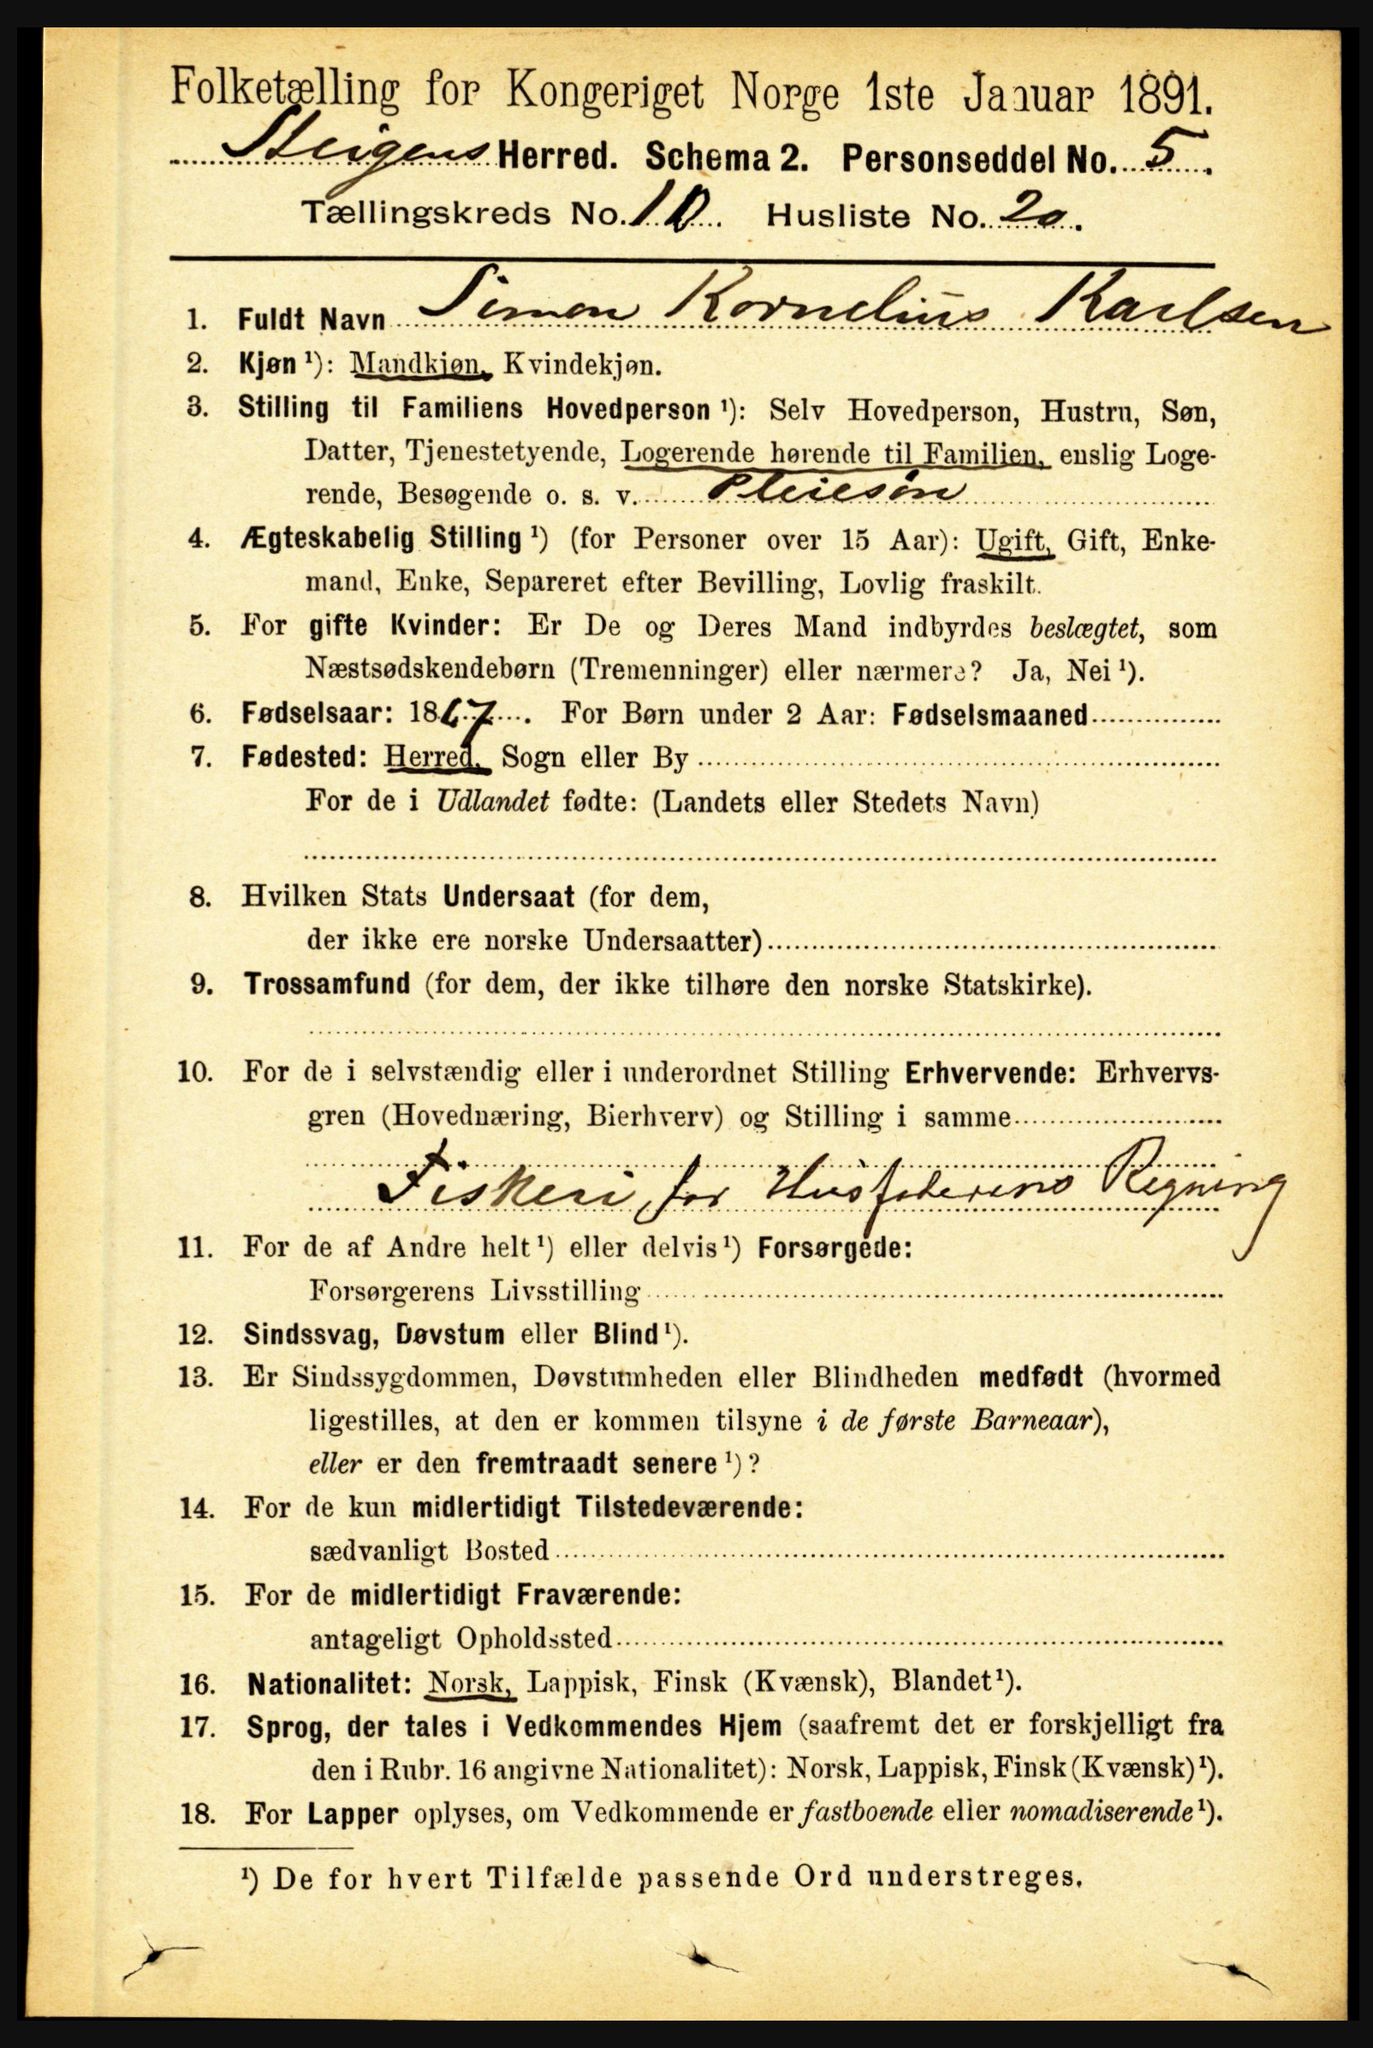 Folketælling for Kongeriget Norge 1ste Januar 1891.
Steigens Herred. Schema 2. Personseddel No. 5.
Tællingskreds No. 10 Husliste No. 20.
1. Fuldt Navn Simon Kornelius Karlsen
2. Kjøn ¹): Mandkjøn, Kvindekjøn.
3. Stilling til Familiens Hovedperson ¹): Selv Hovedperson, Hustru, Søn,
Datter, Tjenestetyende, Logerende hørende til Familien, enslig Loge-
rende, Besøgende o. s. v. Pleiesøn
4. Ægteskabelig Stilling ¹) (for Personer over 15 Aar): Ugift, Gift, Enke-
mand, Enke, Separeret efter Bevilling, Lovlig fraskilt.
5. For gifte Kvinder: Er De og Deres Mand indbyrdes beslægtet, som
Næstsødskendebørn (Tremenninger) eller nærmere? Ja, Nei ¹).
6. Fødselsaar: 1867. For Børn under 2 Aar: Fødselsmaaned
7. Fødested: Herred, Sogn eller By
For de i Udlandet fødte: (Landets eller Stedets Navn)
8. Hvilken Stats Undersaat (for dem,
der ikke ere norske Undersaatter)
9. Trossamfund (for dem, der ikke tilhøre den norske Statskirke).
10. For de i selvstændig eller i underordnet Stilling Erhvervende: Erhvervs-
gren (Hovednæring, Bierhverv) og Stilling i samme
Fiskeri for Husfaderens Regning
11. For de af Andre helt ¹) eller delvis ¹) Forsørgede:
Forsørgerens Livsstilling
12. Sindssvag, Døvstum eller Blind ¹).
13. Er Sindssygdommen, Døvstumheden eller Blindheden medfødt (hvormed
ligestilles, at den er kommen tilsyne i de første Barneaar),
eller er den fremtraadt senere ¹)?
14. For de kun midlertidigt Tilstedeværende:
sædvanligt Bosted
15. For de midlertidigt Fraværende:
antageligt Opholdssted
16. Nationalitet: Norsk, Lappisk, Finsk (Kvænsk), Blandet ¹).
17. Sprog, der tales i Vedkommendes Hjem (saafremt det er forskjelligt fra
den i Rubr. 16 angivne Nationalitet): Norsk, Lappisk, Finsk (Kvænsk) ¹).
18. For Lapper oplyses, om Vedkommende er fastboende eller nomadiserende ¹).
¹) De for hvert Tilfælde passende Ord understreges.